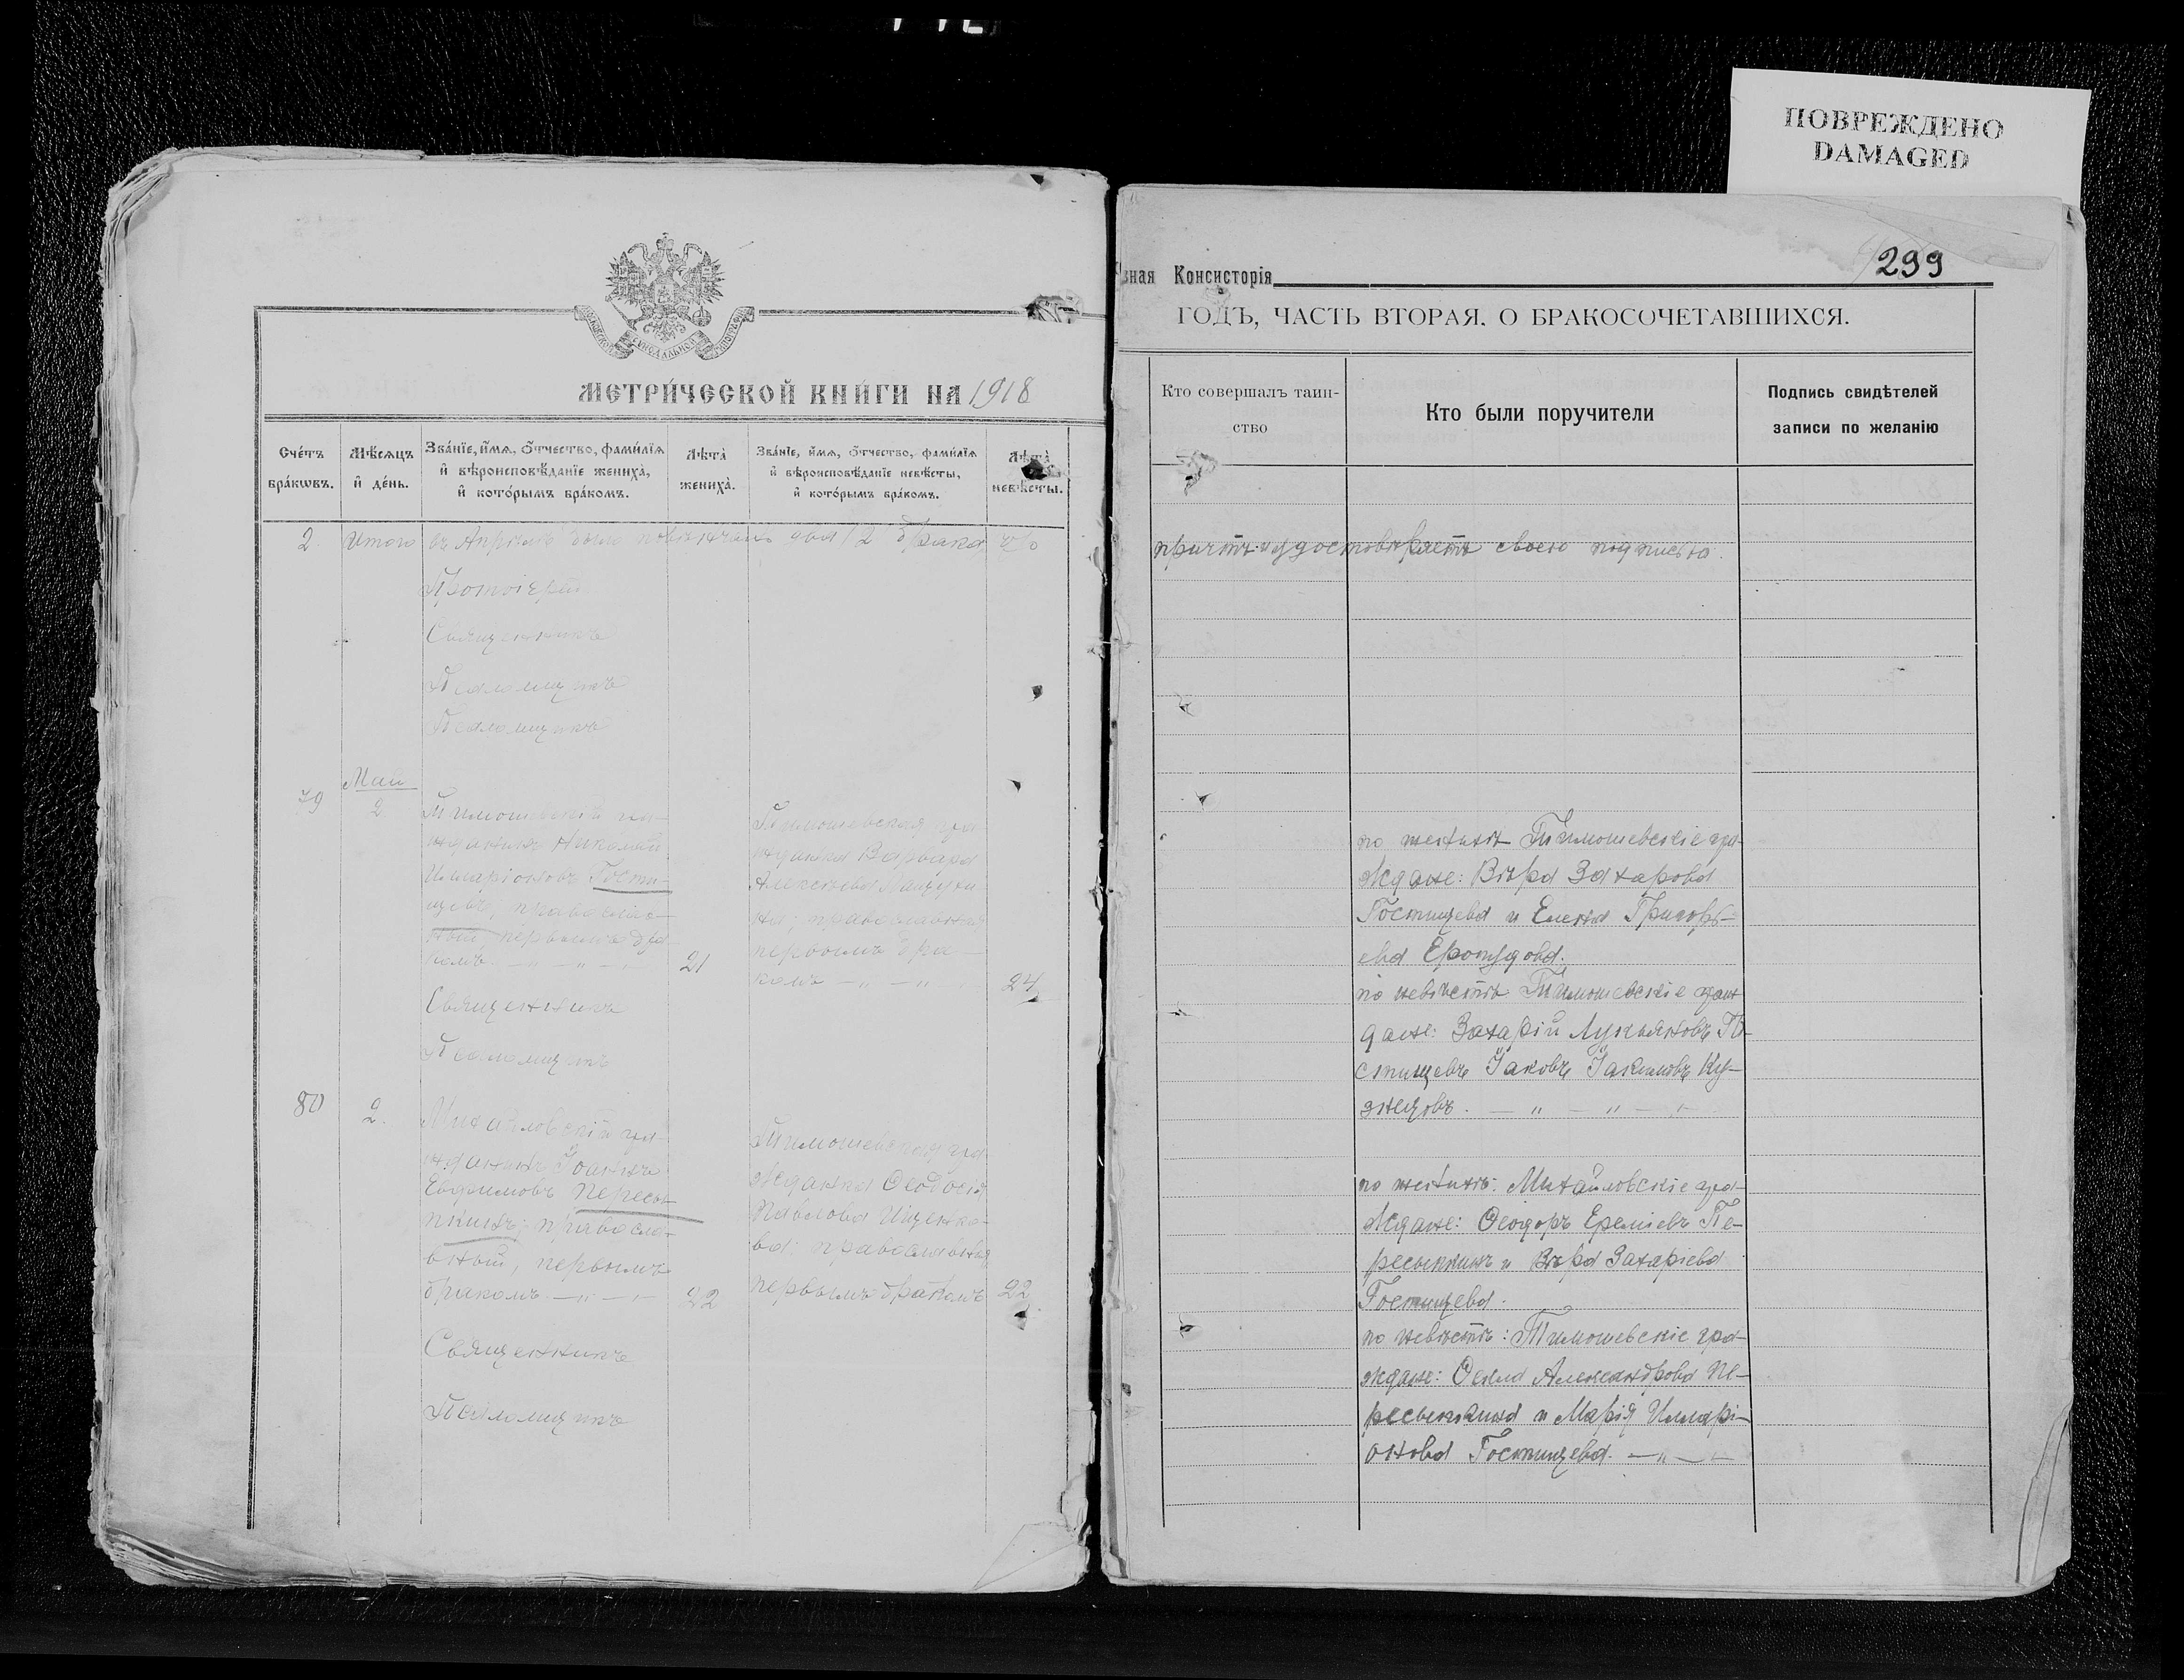 ПОВРЕЖДЕНО
DAMAGED
МЕТРИ́ЧЕСКОЙ КНИ́ГИ НА 1918
Сче́тъ бра́кѡвъ.
Мѣ́сѧцъ и҆ де́нь.
Зва́нїе, и҆́мѧ, ѻ҆́тчество, фами́лїѧ
и҆ вѣроисповѣ́данїе жениха̀,
и҆ кото́рымъ бра́комъ.
Лѣ́та̀ жениха̀.
Зва́нїе, и҆́мѧ, ѻ҆́тчество, фами́лїѧ
и҆ вѣроисповѣ́данїе невѣ́сты,
и҆ кото́рымъ бра́комъ.
Лѣ́та̀ невѣ́сты.
2. Итого въ Апрѣлѣ было повѣнчано два /2 брака
Протоіерей
Священникъ
Псаломщикъ
Псаломщикъ
Май
79 2
Тимошевскій гра-
жданинъ Николай
Илларіоновъ Гости-
щевъ, православ-
ный, первымъ бра-
комъ — „ — „ —
21
Тимошевская гра-
жданка Варвара
Алексѣева
православная
первымъ бра-
комъ — „ — „
24
Священникъ
Псаломщикъ
80 2.
Михайловскій гра-
жданинъ Іоаннъ
Евфимовъ Пересы-
пкинъ, правосла-
вный, первымъ
бракомъ — „ —
22
Тимошевская гра-
жданка Ѳеодосія
Павлова Ищенко-
ва; православная
первымъ бракомъ
22
Священникъ
Псаломщикъ
вная Консисторія
299
ГОДЪ, ЧАСТЬ ВТОРАЯ, О БРАКОСОЧЕТАВШИХСЯ.
Кто совершалъ таин-
ство
Кто были поручители
Подпись свидѣтелей
записи по желанію
причтъ и удостовѣряетъ своею подписью.
по женихѣ Тимошевскіе гра-
ждане: Вѣра Захарова
Гостищева и Елена Григорь-
ева
по невѣстѣ: Тимошевскіе граж
дане: Захарій Лукьяновъ Го-
стищевъ Іаковъ Іакимовъ Ку-
знецовъ. — „ — „ — „ —
по женихѣ: Михайловскіе гра-
ждане: Ѳеодоръ Ереміевъ Пе-
ресыпкинъ и Вѣра Захаріева
Гостищева.
по невѣстѣ: Тимошевскіе гра-
ждане: Ѳекла Александрова Пе-
ресыпкина и Марія Иллари-
онова Гостищева. — „ —